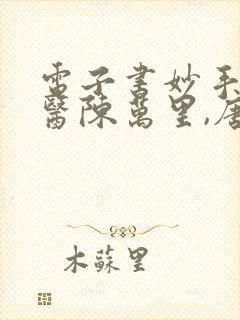 電子書妙手
醫陳萬里,唐
木蘇里